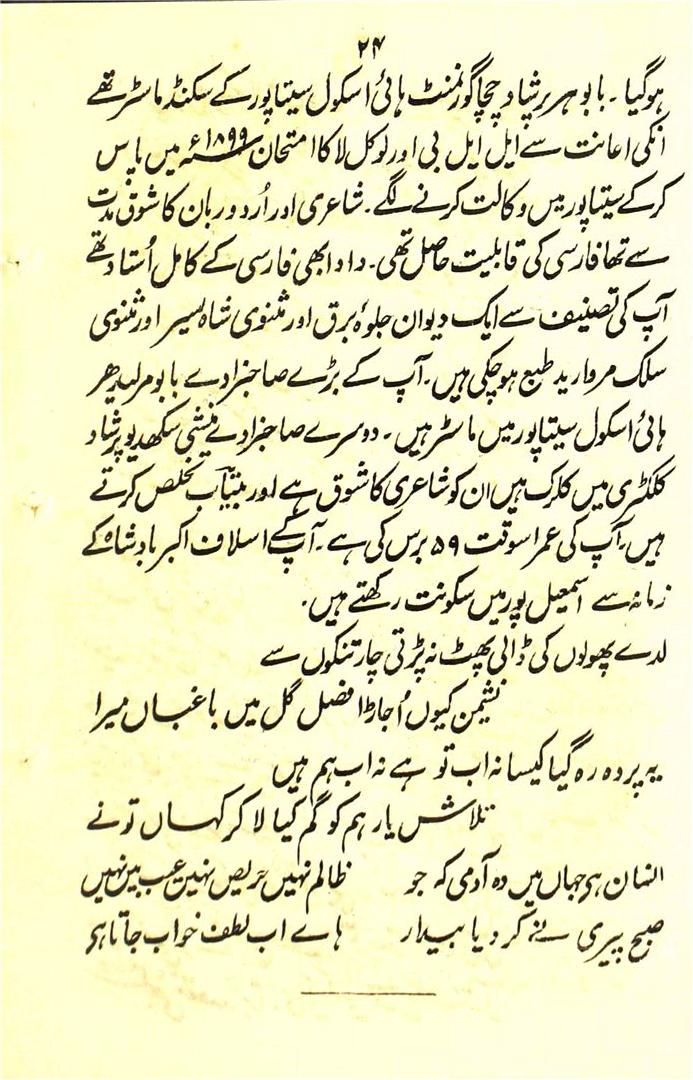 ۲۴
ہوگیا۔ بابو ہر پرشاد چچا گورنمنٹ ہائی اسکول سیتاپور کے سکنڈ ماسٹر تھے
انکی اعانت سے ایل ایل بی اور لوکل لا کا امتحان ۱۸۹۹ء میں پاس
کرکے سیتاپور میں وکالت کرنے لگے۔ شاعری اور اُردو زبان کا شوق مدت
سے تھا فارسی کی قابلیت حاصل تھی۔ دادا بھی فارسی کے کامل اُستاد تھے
آپ کی تصنیف سے ایک دیوان جلوۂ برق اور مثنوی شاہ بسیر اور مثنوی
سلک مروارید طبع ہوچکی ہیں۔ آپ کے بڑے صاحبزادے بابو مرلیدھر
ہائی اسکول سیتاپور میں ماسٹر ہیں۔ دوسرے صاحبزادے منشی سکھدیو پرشاد
کلکٹری میں کلرک ہیں ان کو شاعری کا شوق ہے اور بیتاب تخلص کرتے
ہیں۔ آپ کی عمر اسوقت ۵۹ برس کی ہے۔ آپ کے اسلاف اکبر بادشاہ کے
زمانہ سے اسمعیل پور میں سکونت رکھتے ہیں۔
لدے پھولوں کی ڈالی پھٹ نہ پڑتی چار تنکوں سے
نشیمن کیوں اُجاڑا فصل گل میں باغباں میرا
یہ پردہ رہ گیا کیسا نہ اب تو ہے نہ اب ہم ہیں
تلاش یار ہم کو گم کیا لا کر کہاں تو نے
انسان ہر جہاں میں وہ آدمی کہ جو ظالم نہیں حریص نہیں عیب بیں نہیں
صبح پیری نے کر دیا بیدار ہاے اب لطف خواب جاتا ہر